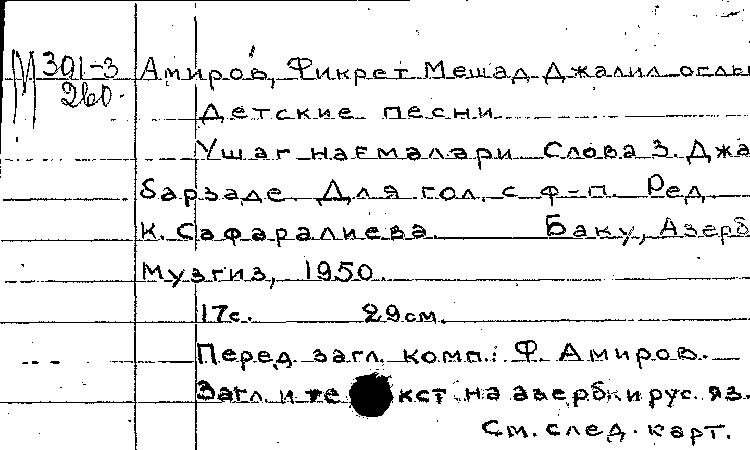 М 301-3
260.
Амиров, Фикрет Мешад Джалил оглы
Детские песни
Ушаг нағмалари Слова З. Джа
барзаде Для гол. с ф-п. Ред.
К. Сафаралиева. Баку, Азерб
Музгиз, 1950.
17с. 29см.
Перед загл. комп.: Ф. Амиров.
Загл. и текст на азерб. и рус. яз.
См. след. карт.